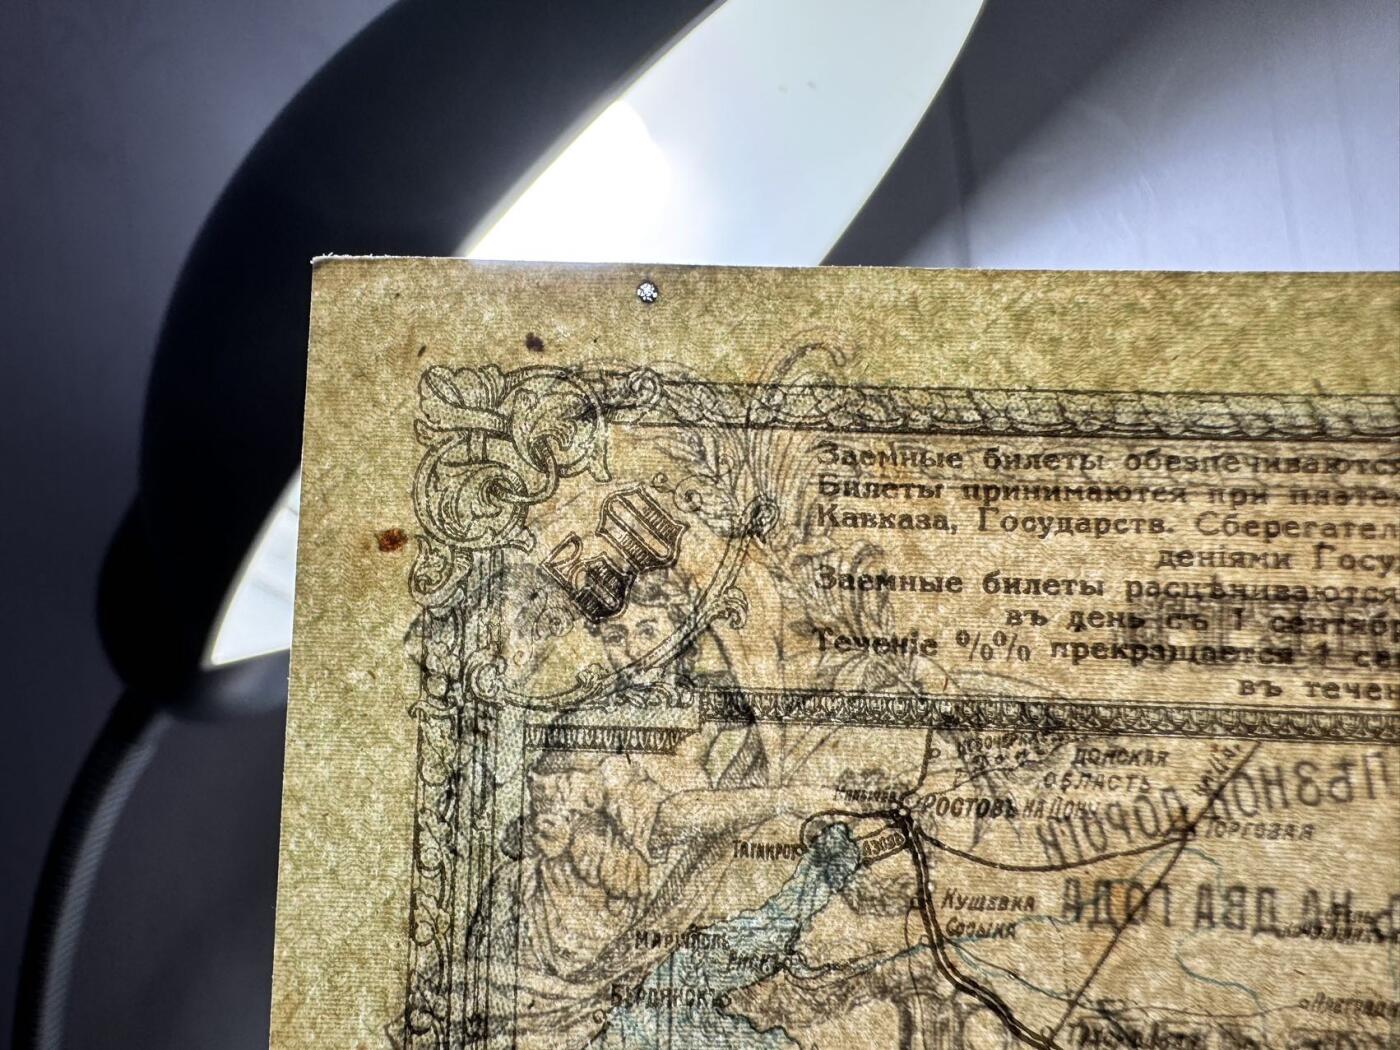 Заемные билеты обезпечиваютс
Билеты принимаются при плате
Кавказа, Государств. Сберегател
деніями Госу
Заемные билеты расцѣниваются
въ день съ 1 сентяб
Теченіе %% прекращается 1 се
въ течен
ДОНСКАЯ
ОБЛАСТЬ
РОСТОВЪ НА ДОНУ
ТОРГОВАЯ
ТАГАНРОГЪ
АЗОВЪ
КУЩЕВКА
СОСЫКА
МАРІУПОЛЬ
ЕЙСКЪ
БЕРДЯНСКЪ
ЛѢЗНОЙ ДОРОГИ
НА ДВА ГОДА